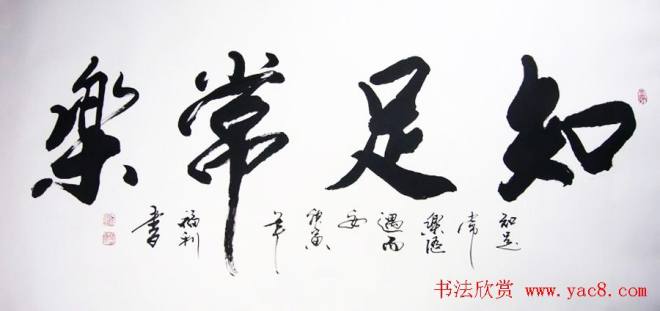 知足常樂
知足
常
樂隨
遇而
安
庚寅
年
福利
書
书法欣赏 www.yac8.com